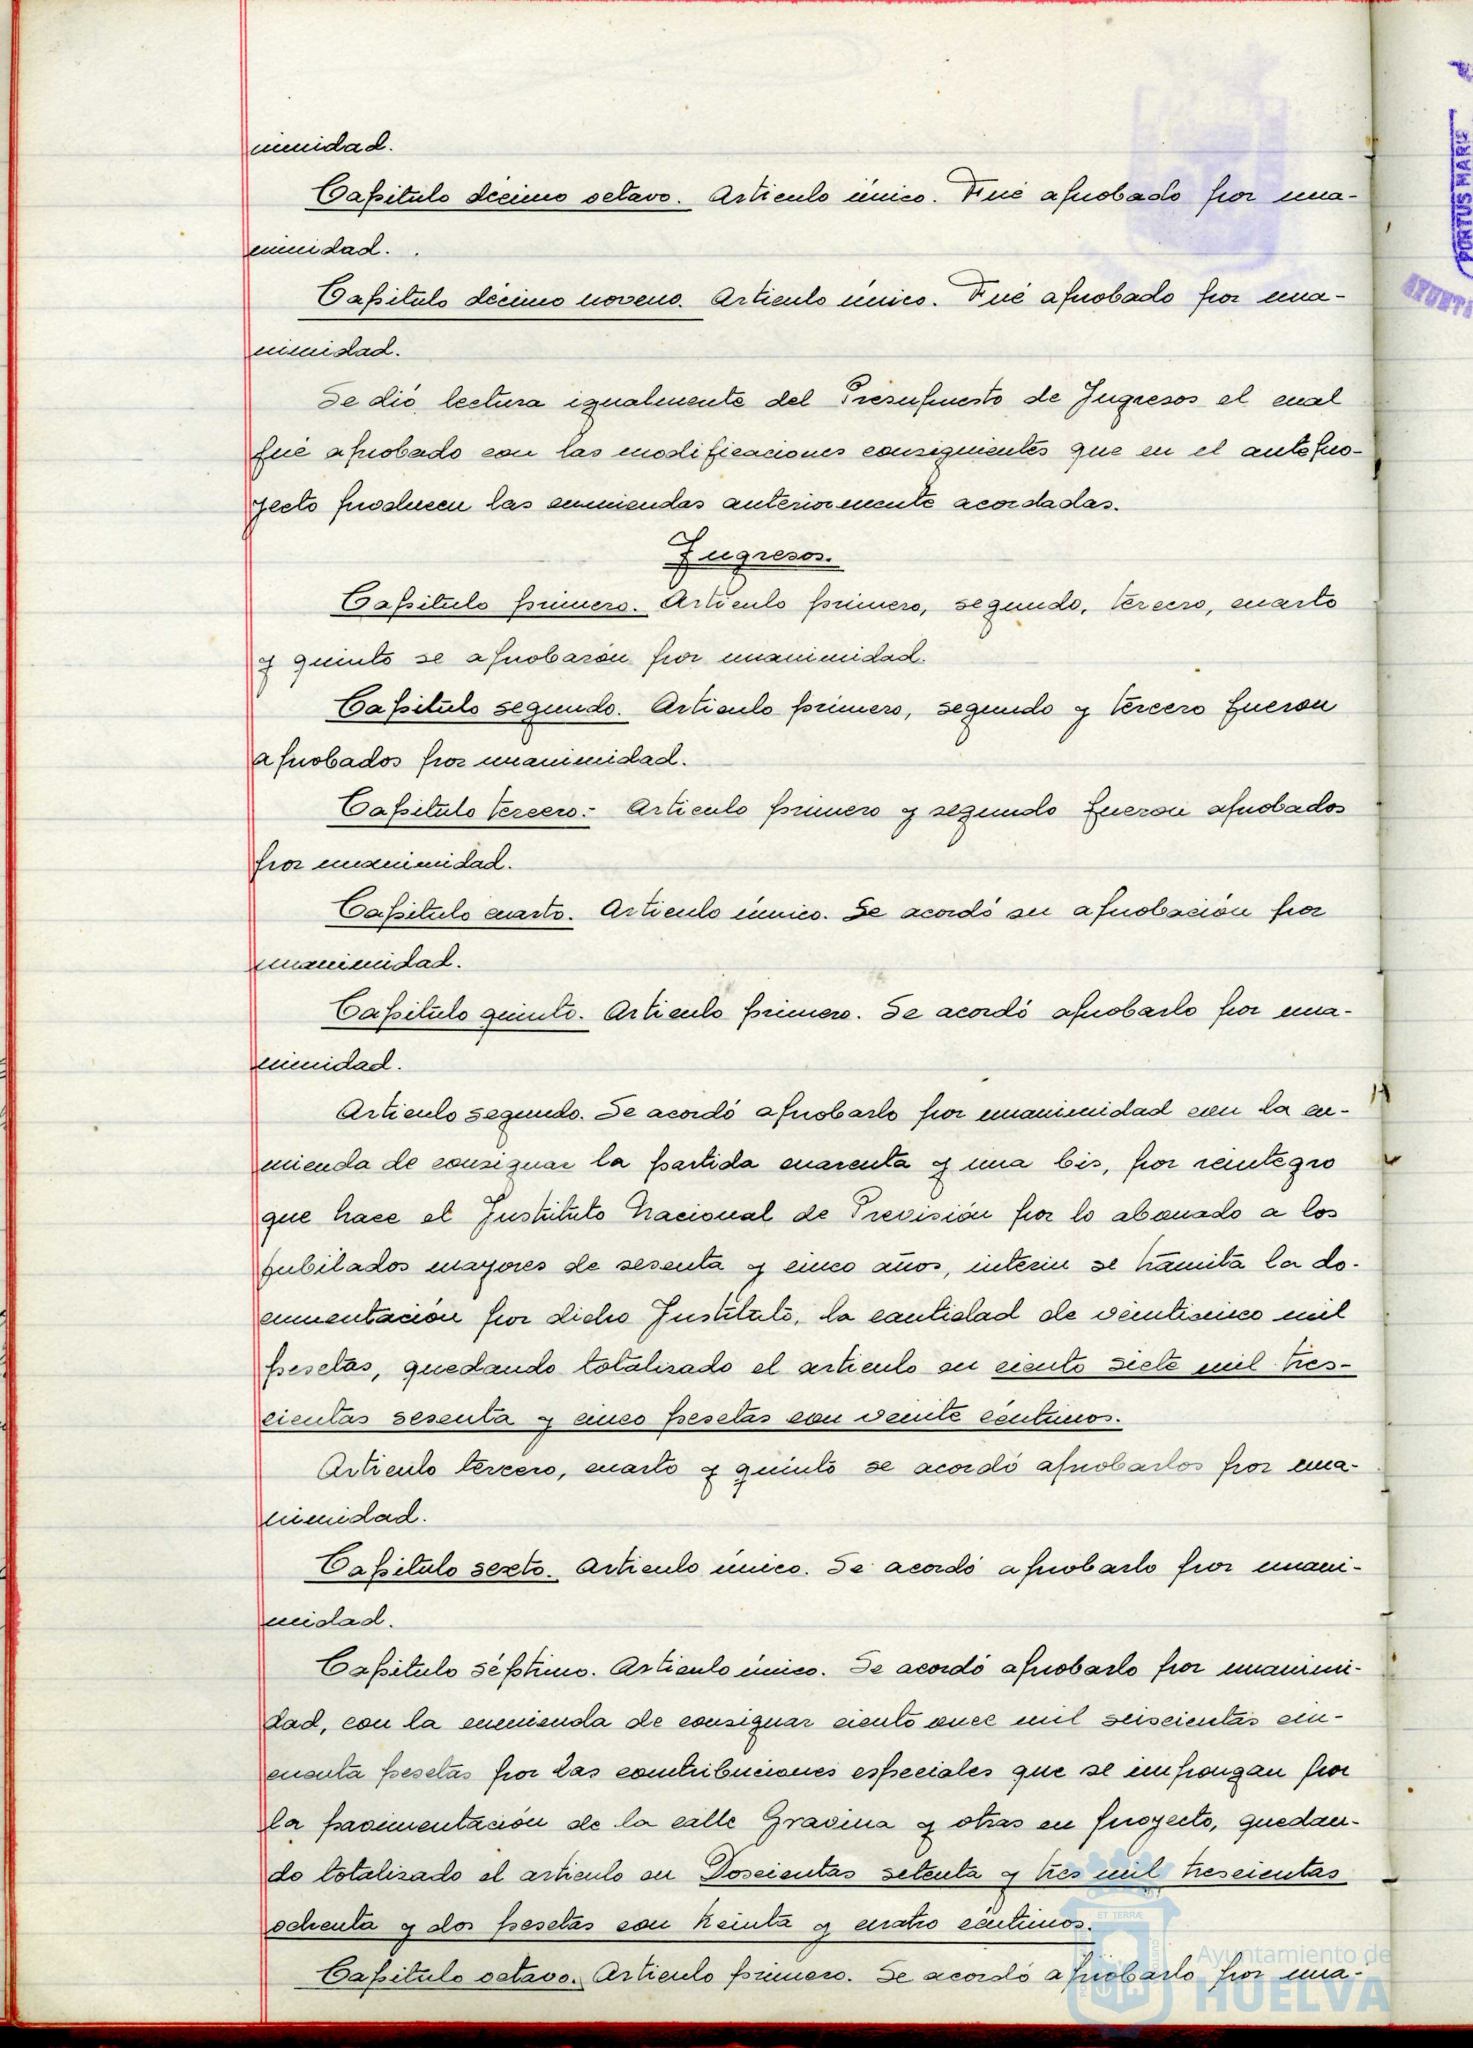 nimidad.
Capitulo décimo octavo. Articulo único. Fué aprobado por una-
nimidad.
Capitulo décimo noveno. Articulo único. Fué aprobado por una-
nimidad.
Se dió lectura igualmente del Presupuesto de Ingresos el cual
fué aprobado con las modificaciones consiguientes que en el antepro-
yecto producen las enmiendas anteriormente acordadas.
Ingresos.
Capitulo primero. Articulo primero, segundo, tercero, cuarto
y quinto se aprobarón por unanimidad.
Capitulo segundo. Articulo primero, segundo y tercero fueron
aprobados por unanimidad.
Capitulo tercero:- Articulo primero y segundo fueron aprobados
por unanimidad.
Capitulo cuarto. Articulo único. Se acordó su aprobación por
unanimidad.
Capitulo quinto. Articulo primero. Se acordó aprobarlo por una-
nimidad.
Articulo segundo. Se acordó aprobarlo por unanimidad con la en-
mienda de consignar la partida cuarenta y una bis, por reintegro
que hace el Instituto Nacional de Previsión por lo abonado a los
jubilados mayores de sesenta y cinco años, interin se tramita la do-
cumentación por dicho Instituto, la cantidad de veinticinco mil
pesetas, quedando totalizado el articulo en ciento siete mil tres-
cientas sesenta y cinco pesetas con veinte céntimos.
Articulo tercero, cuarto y quinto se acordó aprobarlos por una-
nimidad.
Capitulo sexto. Articulo único. Se acordó aprobarlo por unani-
midad.
Capitulo séptimo. Articulo único. Se acordó aprobarlo por unanimi-
dad, con la enmienda de consignar ciento once mil seiscientas cin-
cuenta pesetas por las contribuciones especiales que se impongan por
la pavimentación de la calle Gravina y otras en proyecto, quedan-
do totalizado el articulo en Doscientas setenta y tres mil trescientas
ochenta y dos pesetas con treinta y cuatro céntimos.
Capitulo octavo. Articulo primero. Se acordó aprobarlo por una-
PORTUS MARIS
ET TERRÆ
Ayuntamiento de
HUELVA